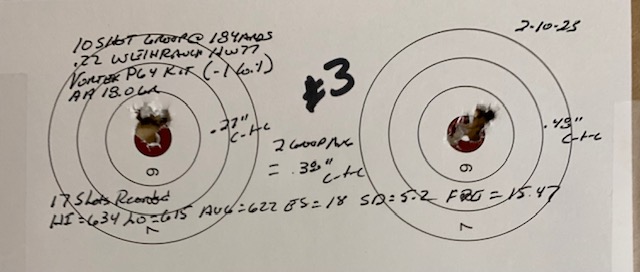 10 SHOT GROUP @ 18 YARDS
.22 WEIHRAUCH HW77
VORTEK PG4 KIT (-1 
AA 18.0 GR
#3
2-10-23
.27"
c-t-c
.49"
c-t-c
2 GROUP AVG
= .38"
c-t-c
6
6
17 Shots Recorded
HI=634 LO=615 AVG=622 ES=18 SD=5.2 FPE=15.47
7
7